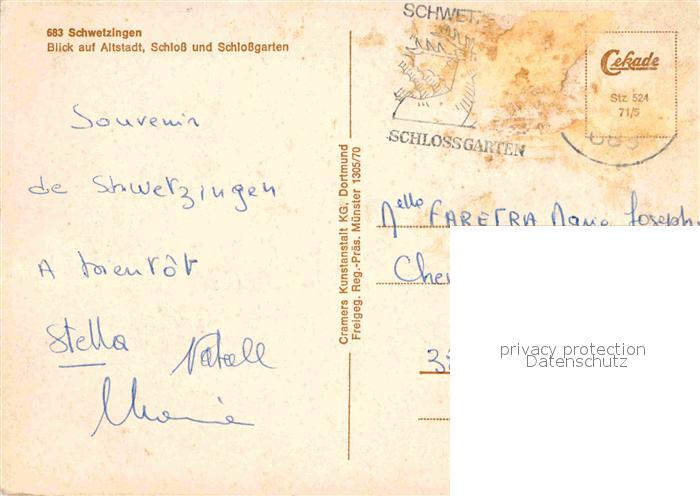 683 Schwetzingen
Blick auf Altstadt, Schloß und Schloßgarten
Souvenir
de Schwetzingen
A bientôt
Stella
Cramers Kunstanstalt KG, Dortmund
Freigeg. Reg.-Präs. Münster 1305/70
SCHWET
SCHLOSSGARTEN
Cekade
Stz 524
71/5
Melle FARETRA Marie Joseph
privacy protection
Datenschutz